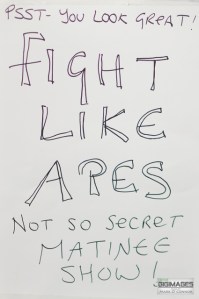 PSST- YOU LOOK GREAT!
FIGHT
LIKE
APES
NOT SO SECRET
MATINEE
SHOW!